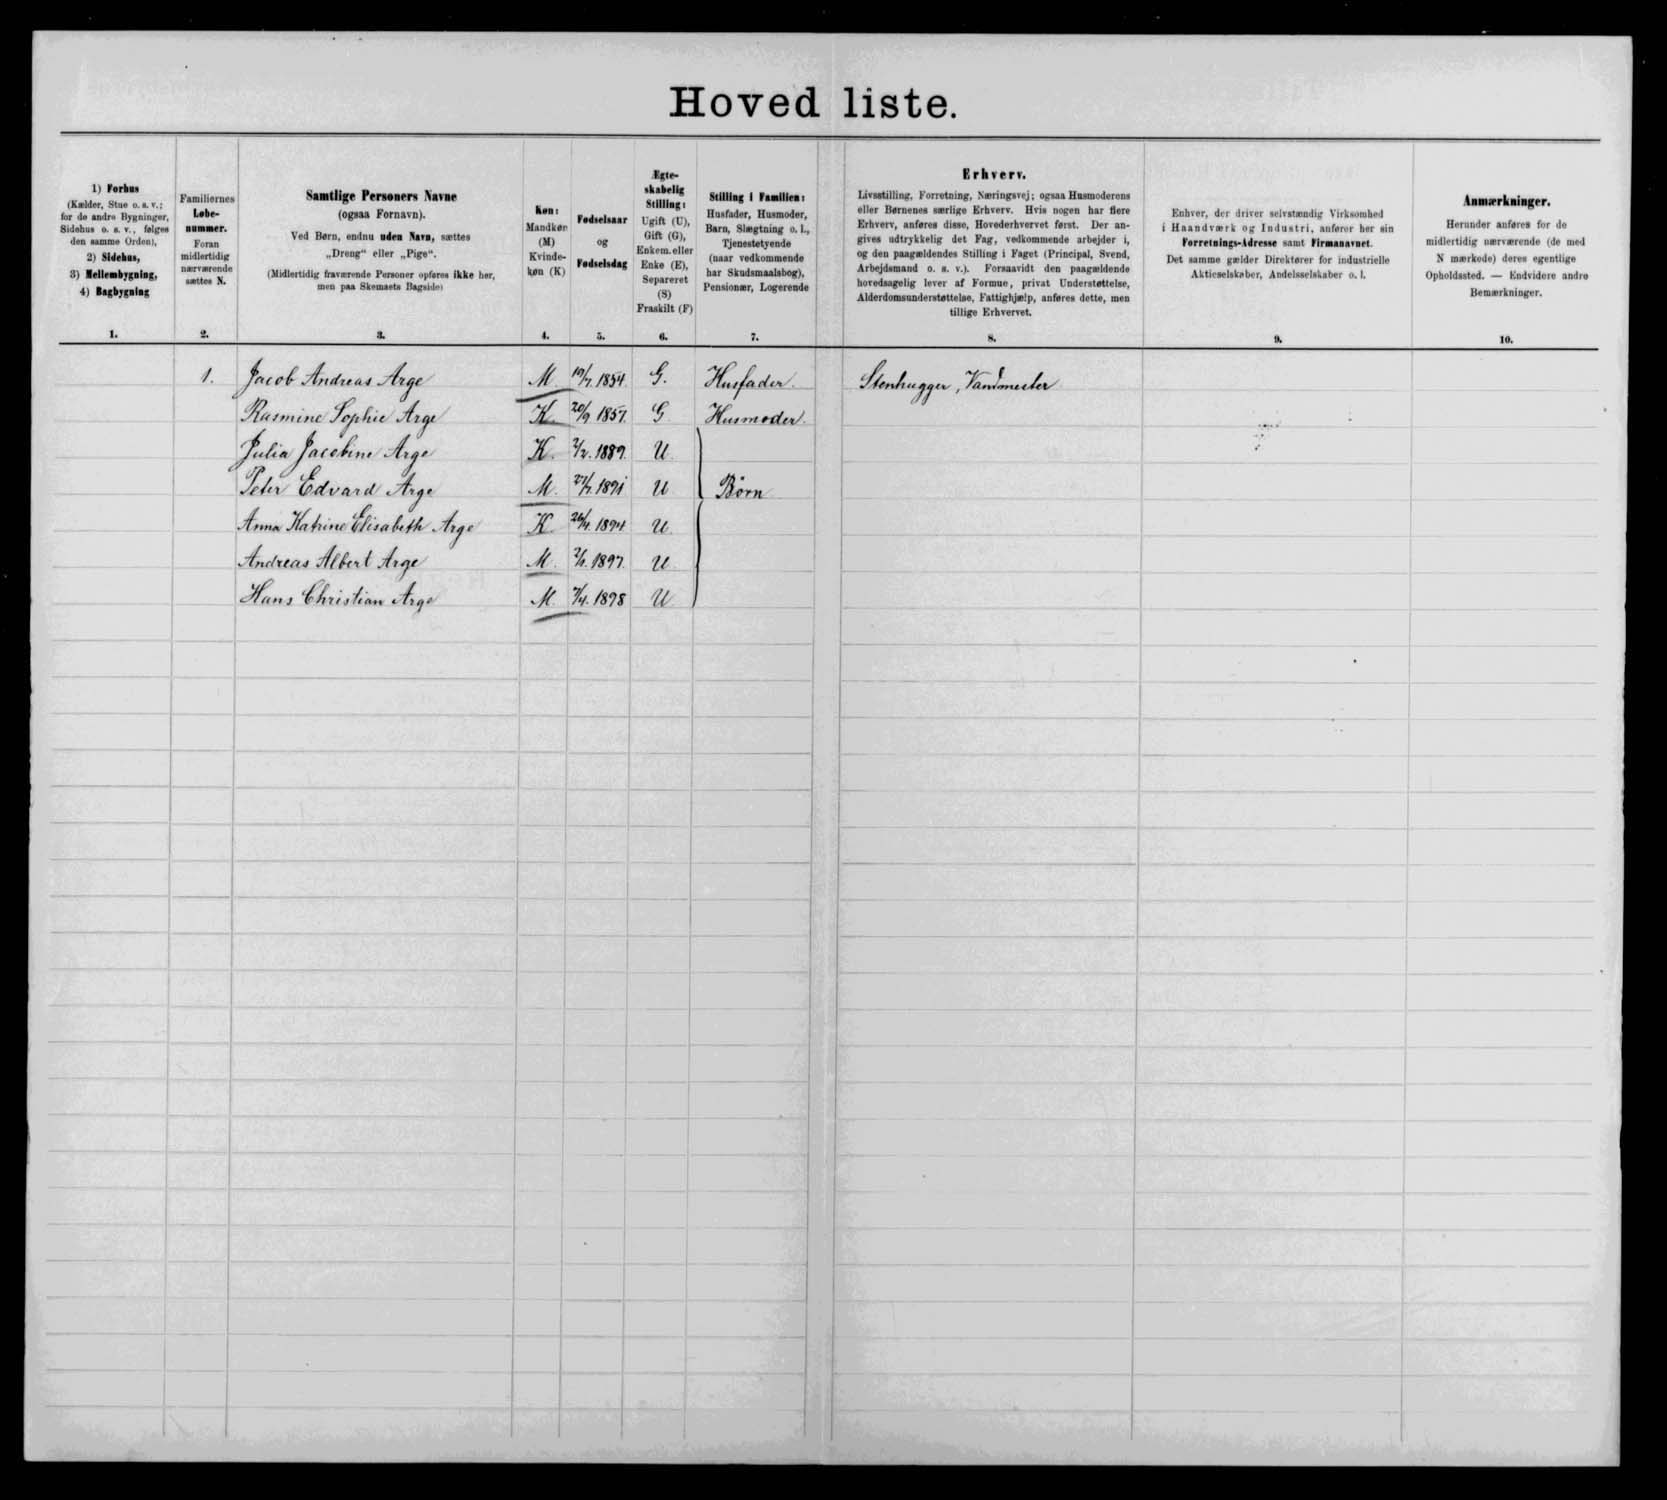 Hovedliste.
1) Forhus
(Kælder, Stue o. s. v.;
for de andre Bygninger,
Sidehus o. s. v., følges
den samme Orden),
2) Sidehus,
3) Mellembygning,
4) Bagbygning
1.
Familiernes
Løbe-
nummer.
Foran
midlertidig
nærværende
sættes N.
2.
Samtlige Personers Navne
(ogsaa Fornavn).
Ved Børn, endnu uden Navn, sættes
„Dreng“ eller „Pige“.
(Midlertidig fraværende Personer opføres ikke her,
men paa Skemaets Bagside)
3.
Køn:
Mandkøn
(M)
Kvinde-
køn (K)
4.
Fødselsaar
og
Fødselsdag
5.
Ægte-
skabelig
Stilling:
Ugift (U),
Gift (G),
Enkem. eller
Enke (E),
Separeret
(S)
Fraskilt (F)
6.
Stilling i Familien:
Husfader, Husmoder,
Barn, Slægtning o. l.,
Tjenestetyende
(naar vedkommende
har Skudsmaalsbog),
Pensionær, Logerende
7.
Erhverv.
Livsstilling, Forretning, Næringsvej; ogsaa Husmoderens
eller Børnenes særlige Erhverv. Hvis nogen har flere
Erhverv, anføres disse, Hovederhvervet først. Der an-
gives udtrykkelig det Fag, vedkommende arbejder i,
og den paagældendes Stilling i Faget (Principal, Svend,
Arbejdsmand o. s. v.). Forsaavidt den paagældende
hovedsagelig lever af Formue, privat Understøttelse,
Alderdomsunderstøttelse, Fattighjælp, anføres dette, men
tillige Erhvervet.
8.
Enhver, der driver selvstændig Virksomhed
i Haandværk og Industri, anfører her sin
Forretnings-Adresse samt Firmanavnet.
Det samme gælder Direktører for industrielle
Aktieselskaber, Andelsselskaber o. l.
9.
Anmærkninger.
Herunder anføres for de
midlertidig nærværende (de med
N mærkede) deres egentlige
Opholdssted. — Endvidere andre
Bemærkninger.
10.
1. Jacob Andreas Arge M. 19/7. 1854. G. Husfader. Stenhugger, Vandmester
Rasmine Sophie Arge K. 20/9 1857. G. Husmoder.
Julia Jacobine Arge K. 2/2. 1889. U.
Peter Edvard Arge M. 27/7. 1891 U Børn
Anna Katrine Elisabeth Arge K. 26/4. 1894 U.
Andreas Albert Arge M. 1897. U.
Hans Christian Arge M. 7/4. 1898 U.